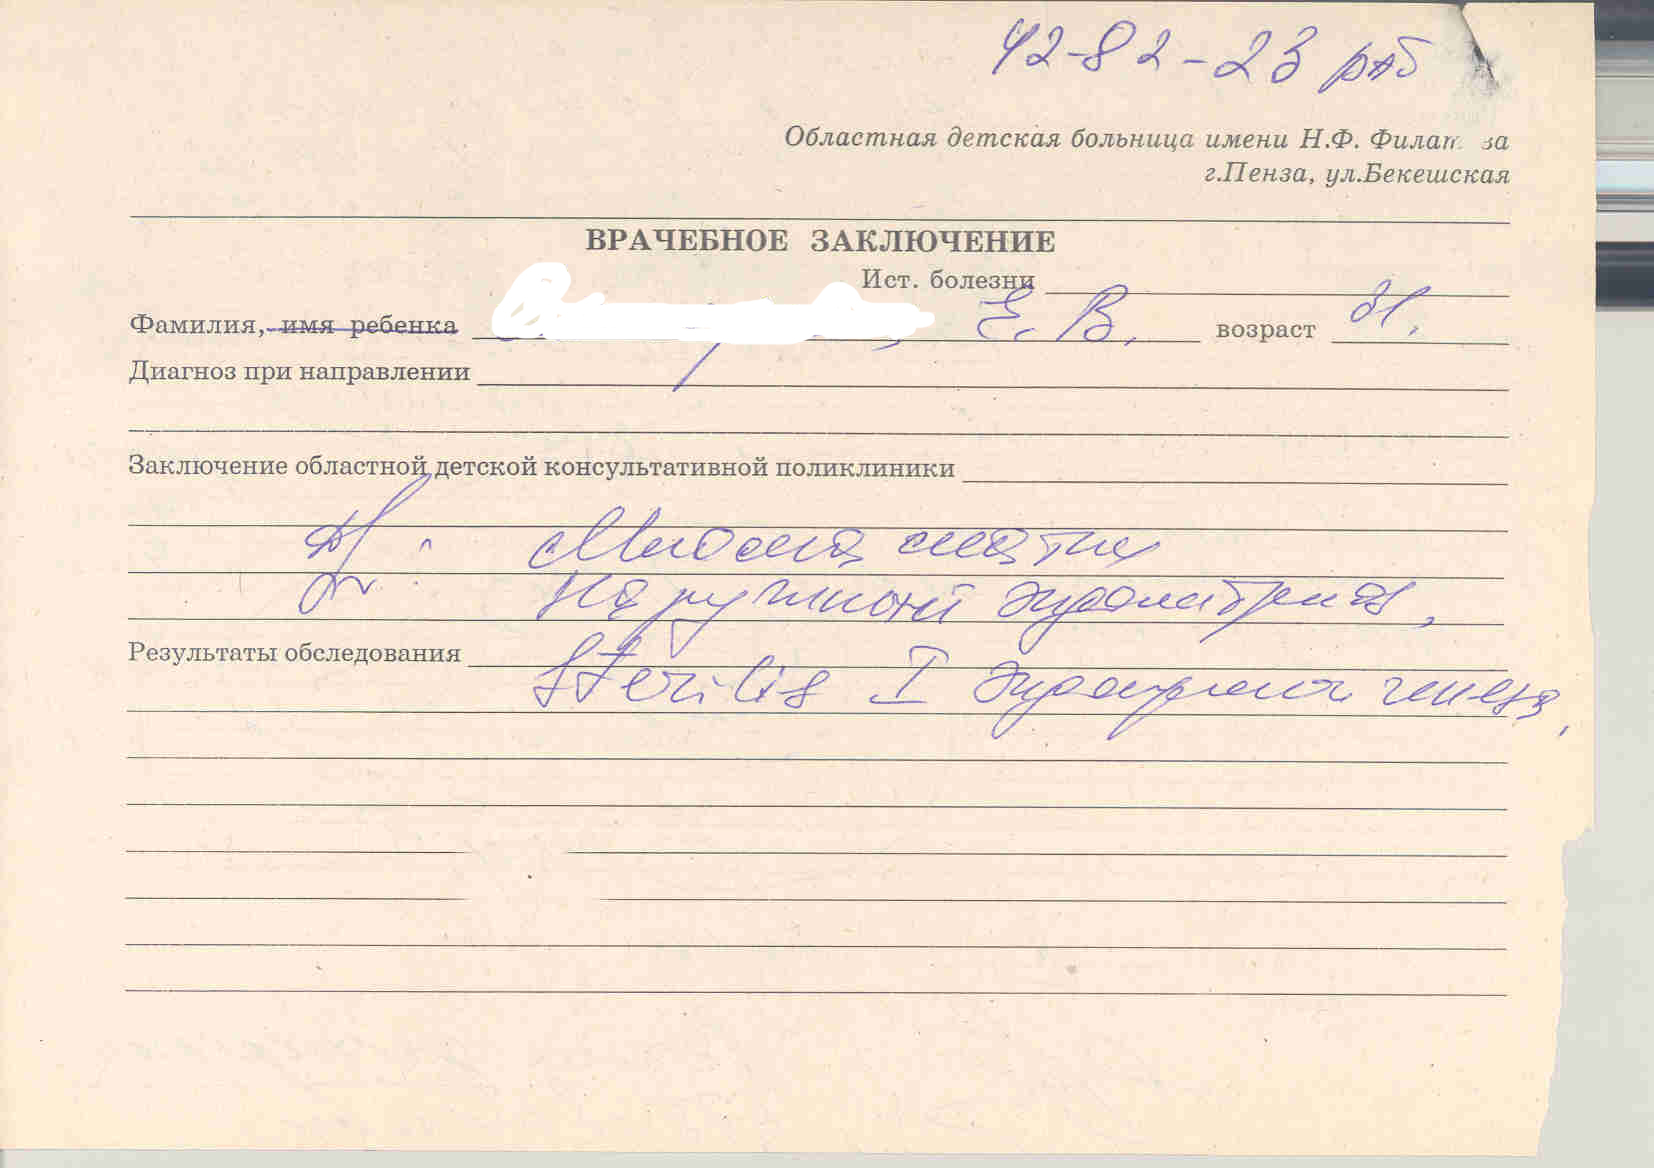 42-82-23 раб
Областная детская больница имени Н.Ф. Филат ва
г.Пенза, ул.Бекешская
ВРАЧЕБНОЕ ЗАКЛЮЧЕНИЕ
Ист. болезни
Фамилия, имя ребенка Е. В. возраст 31.
Диагноз при направлении
Заключение областной детской консультативной поликлиники
Миома матки
наружный эндометриоз,
Результаты обследования
Sterilis I эндокринного генеза,